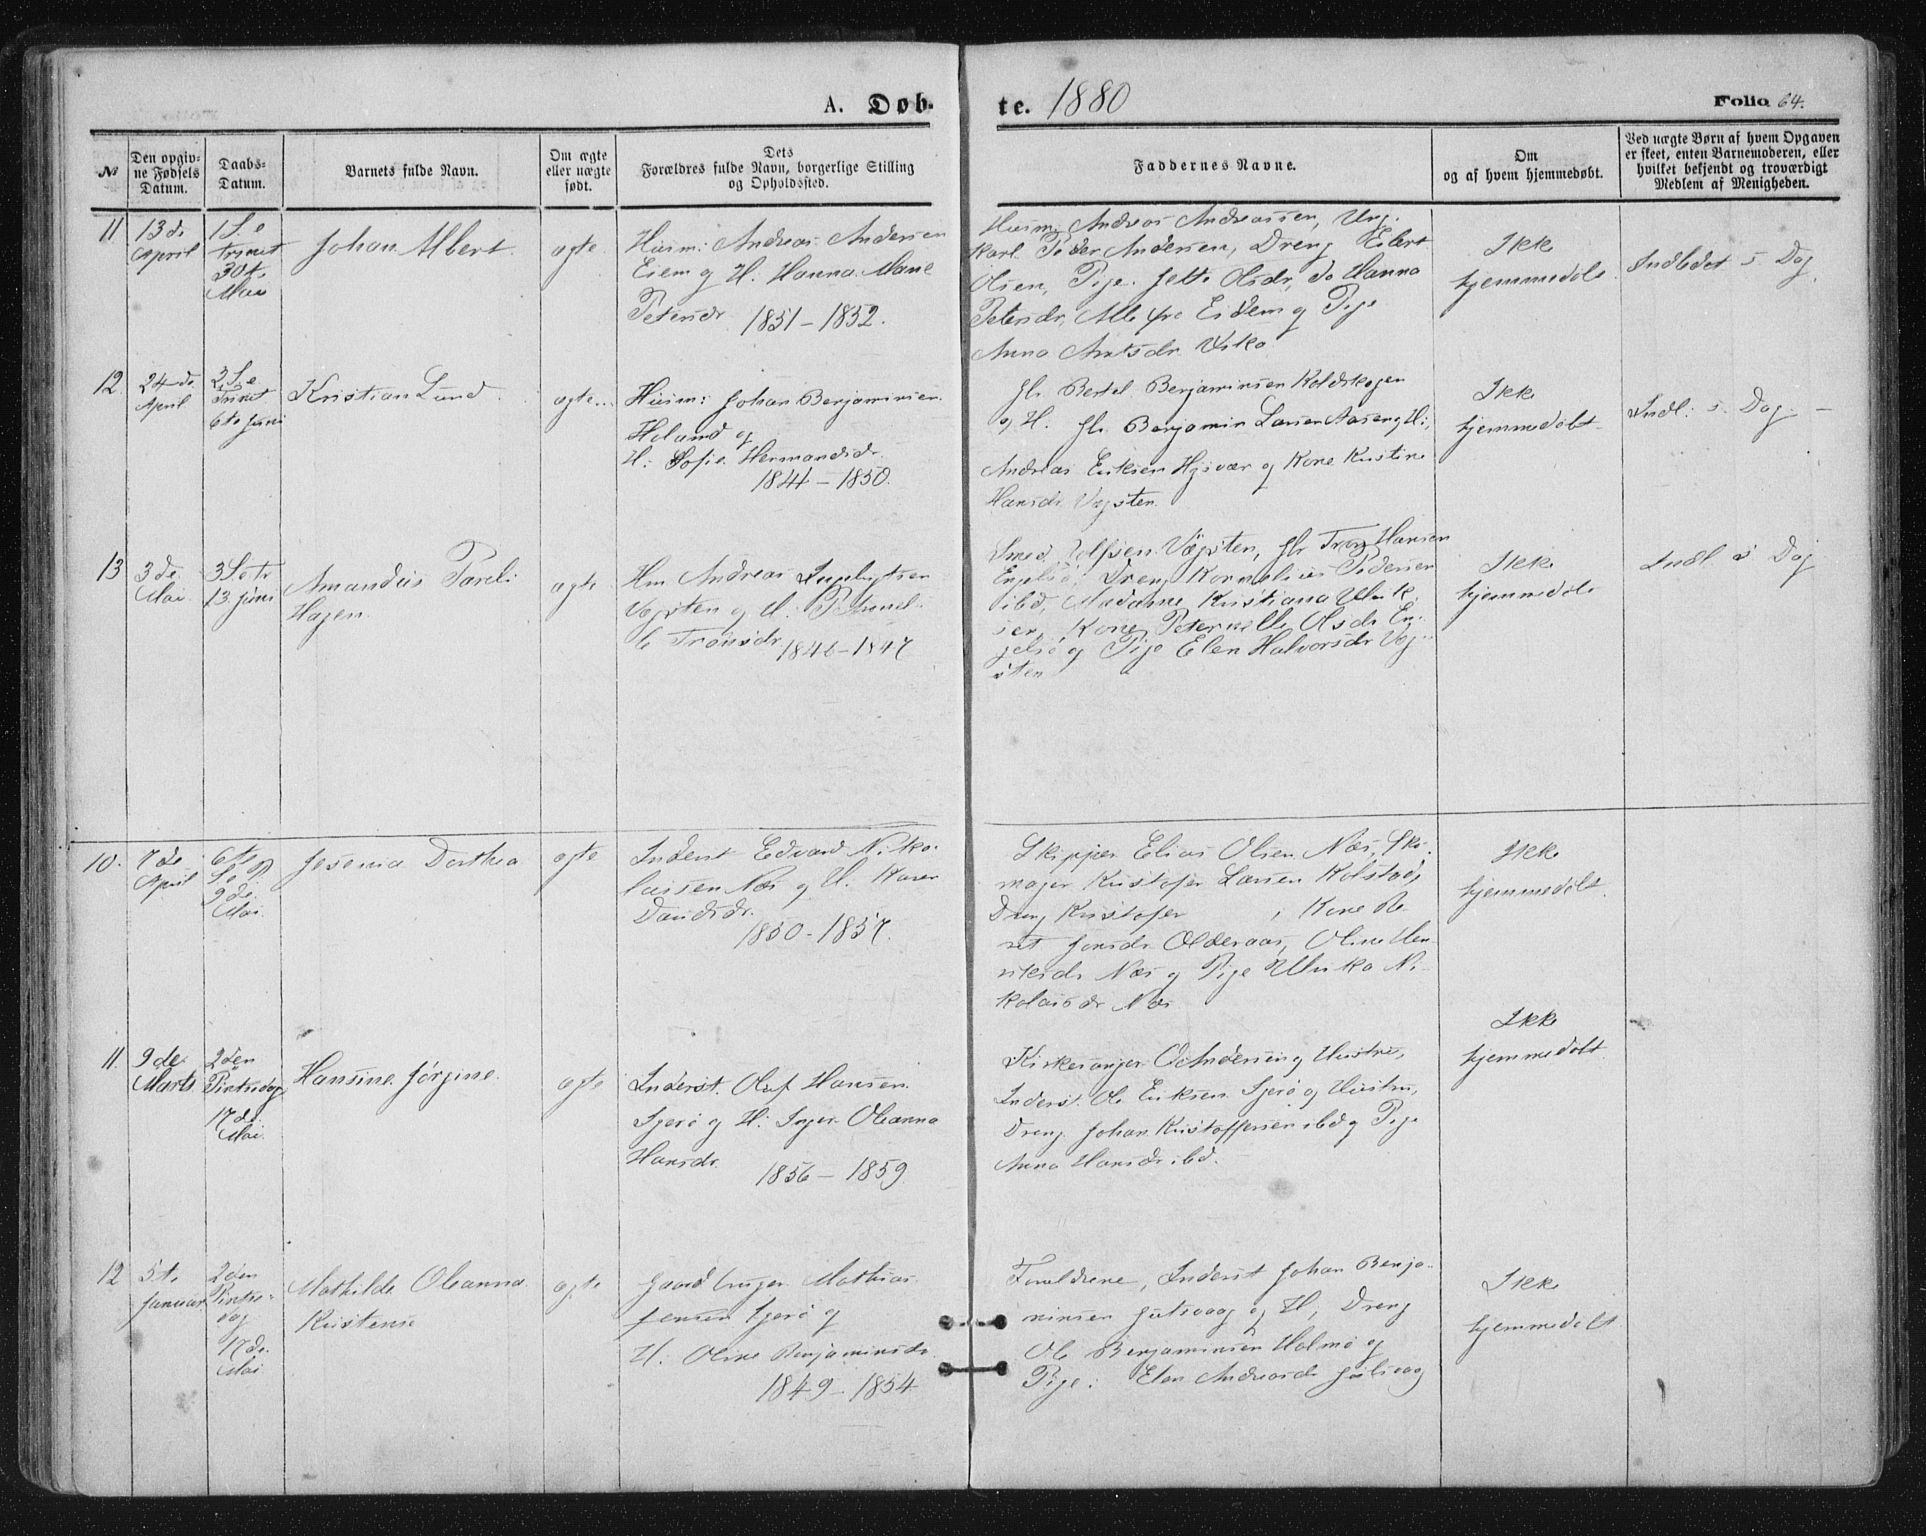 A. Døb-
te. 1880
Folio 64.
No
Den opgiv-
ne Fødsels
Datum.
Daabs-
Datum.
Barnets fulde Navn.
Om ægte
eller uægte
født.
Dets
Forældres fulde Navn, borgerlige Stilling
og Opholdssted.
Faddernes Navne.
Om
og af hvem hjemmedøbt.
Ved uægte Børn af hvem Opgaven
er skeet, enten Barnemoderen, eller
hvilket bekjendt og troværdigt
Medlem af Menigheden.
11
13de
April
1 S. e
trinit
30te
Mai
Johan Albert
ægte
Husm: Andreas Andersen
Eiem og H. Hanna Marie
Petersdr. 1851-1852.
Husm. Andreas Andreassen, Ung-
karl Peder Andersen, Dreng Eilert
Olsen, Pige Jette Olsdr, do Hanna
Petersdr, Alle Eidem og Pige
Anna
Ikke
hjemmedøbt
Indledet s. Dag
12
24de
April
2 S. e
Trinit
6te Juni
Kristian Lund
ægte
Husm: Johan Benjaminsen
Holand og
H: Sofie Hermandsdr.
1841-1850.
Gr. Bertel Benjaminsen Koldskogen
og H. Gr. Benjamin Larsen Aaseng, H:
Andreas Eriksen og Kone Kristine
Hansdr Vægsten.
Ikke
hjemmedøbt
Indl: s. Dag
13
3de
Mai
3 S. e tr
13 Juni
Amandus Pareli
Hagen
ægte
Hm Andreas
Vægsten og H: Petronel-
le Tronsdr 1846-1847
Vægsten, Gr Hansen
Engelsø, Dreng Kornelius Pedersen
ibd, Madame Kristiana Ulrik-
sen, Kone Peternelle Olsdr En-
gelsø og Pige Elen Halvorsdr Væg-
sten
Ikke
hjemmedøbt
Indl s Dag
10.
7de
April
6te
S. e P
9de
Mai.
Jesenia Dorthea
ægte
Inderst Edvard Niko-
laisen Næs og H. Karen
Davidsdr.
1850-1857.
Skipper Elias Olsen Næs, Sko-
mager Kristofer Larsen Kolstad,
Dreng Kristofer , Kone Be-
ret Jonsdr Olderaas, Oline Hen-
riksdr Næs og Pige Ulrika Ni-
kolaisdr Næs
Ikke
hjemmedøbt.
11.
9de
Marts
2den
Pintsedag
17de
Mai.
Hansine Jørgine.
ægte
Inderst. Oluf Hansen
Gjerø og H: Inger Oleanna
Hansdr.
1856-1859
Kirkesanger O. Andersen og Hustru,
Inderst. Ole Eriksen Gjerø og Hustru,
Dreng Johan Kristoffersen ibd og Pige
Anna Hansdr ibd.
Ikke
hjemmedøbt
12
5te
Januar
2den
Pintse-
dag
17de
Mai
Mathilde Oleanna
Kristense
ægte
Gaardbruger Mathias
Jensen Gjerø og
H. Oline Benjaminsdr.
1849-1854
Foreldrene, Inderst Johan Benja-
minsen og H, Dreng
Ole Benjaminsen Holmø og
Pige: Elen Andreasdr
Ikke
hjemmedøbt